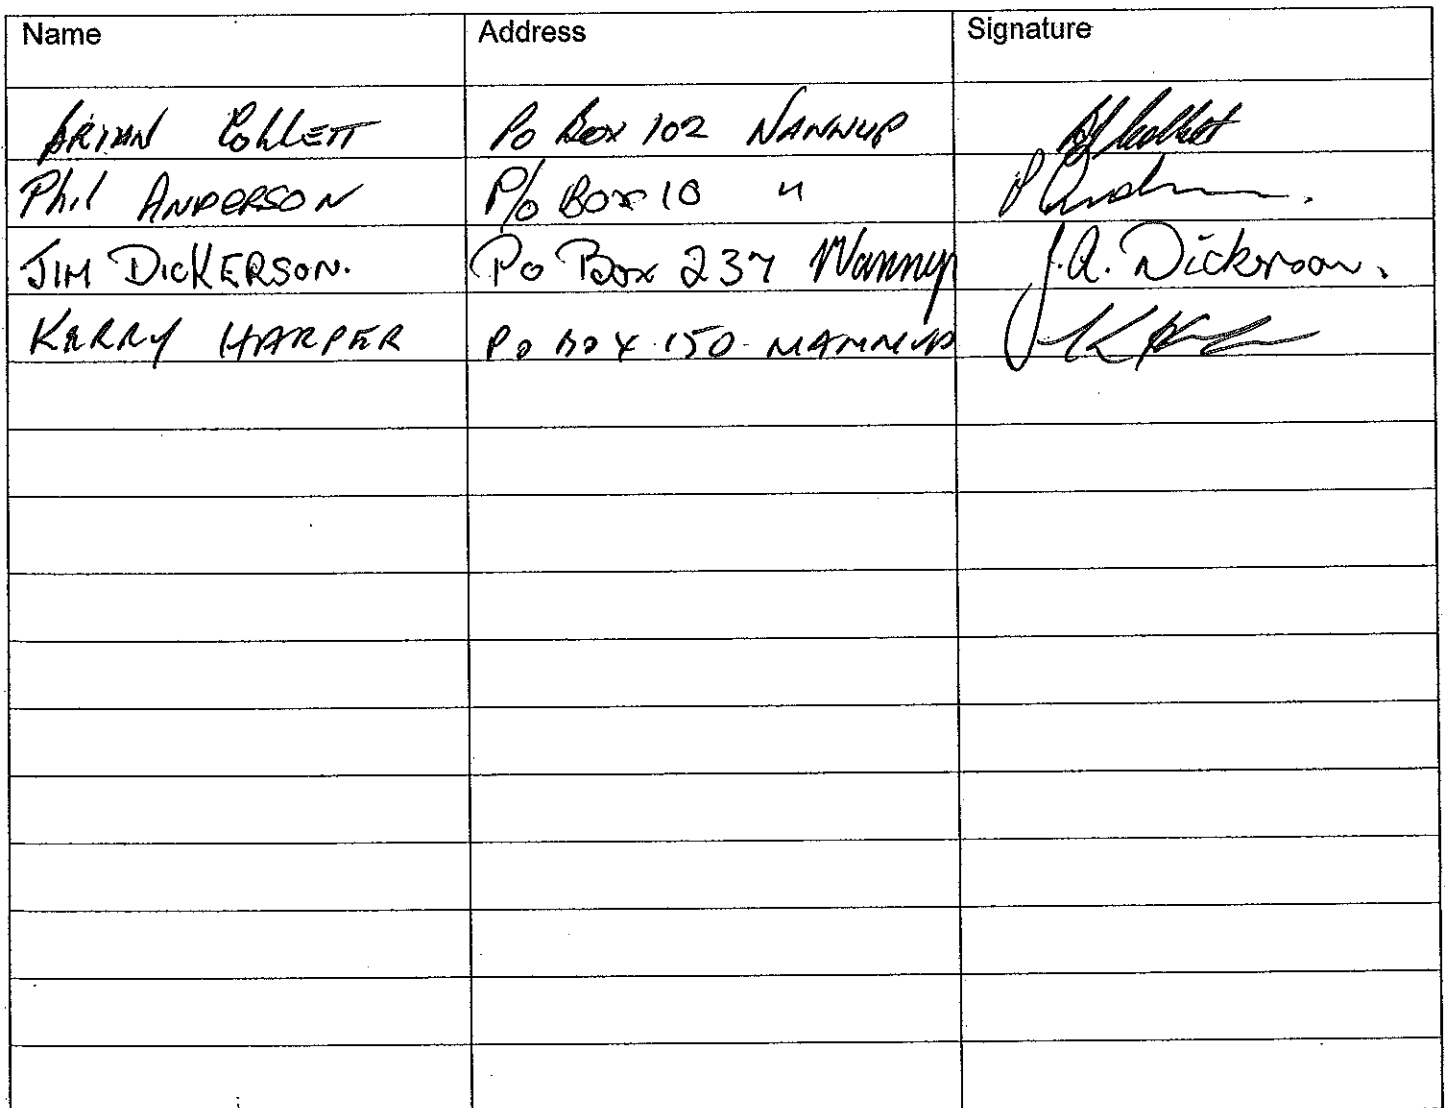 Name Address Signature
BRIAN COLLETT PO Box 102 NANNUP
Phil ANDERSON P/o Box 10 "
JIM DICKERSON. Po Box 237 Nannup J.A. Dickerson.
KERRY HARPER PO BOX 150 NANNUP